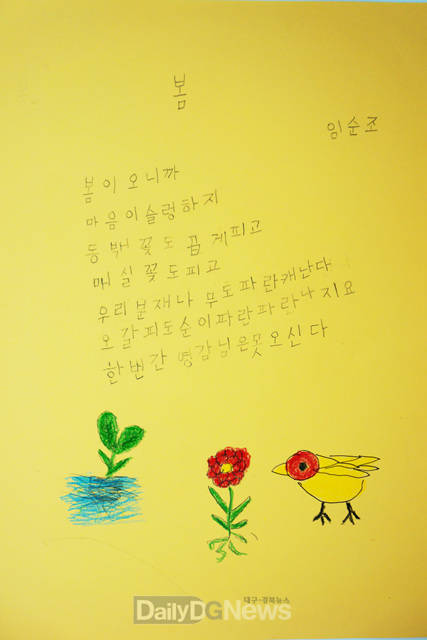 봄
임순조
봄이오니까
마음이슬렁하지
동백꽃도곱게피고
매실꽃도피고
우리분재나무도파란캐난다
오갈피도순이파란파란나지요
한번간영감님은못오신다
대구·경북뉴스
DailyDGNews